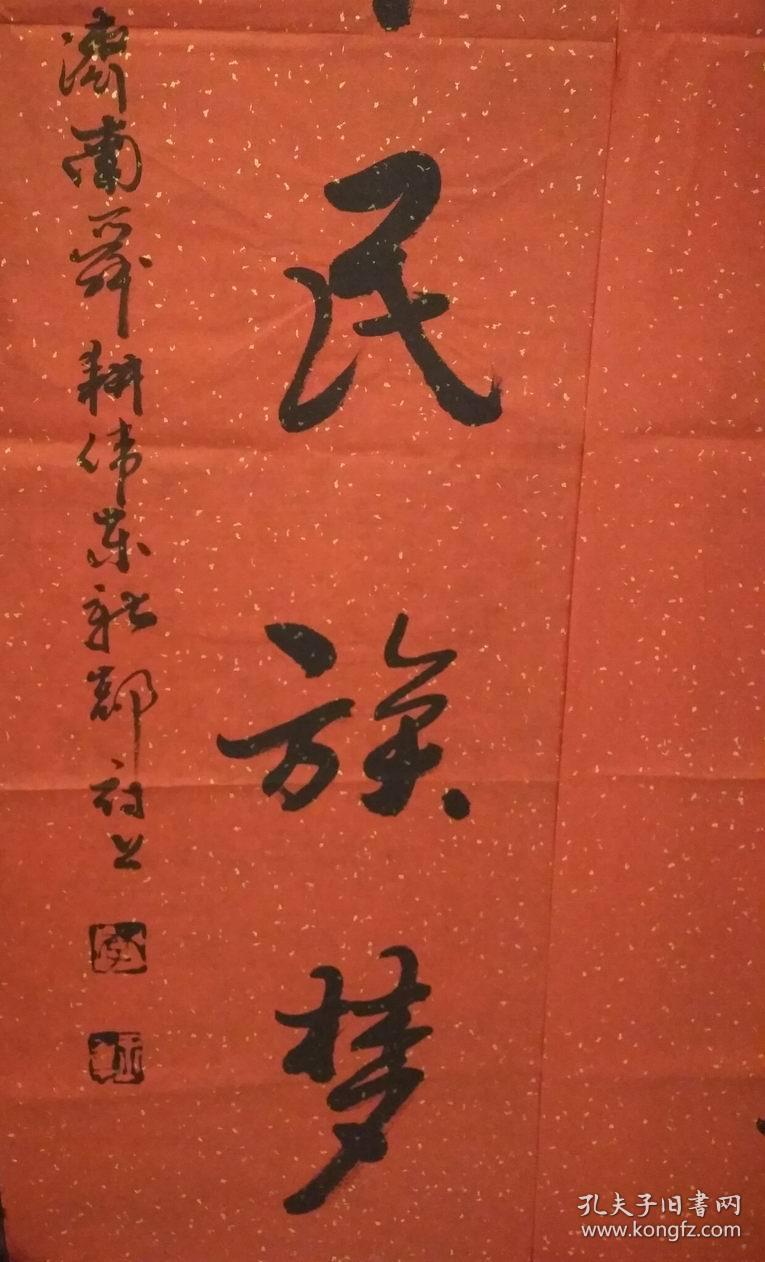 民族梦
济南舜耕伟东新都
孔夫子旧書网
www.kongfz.com